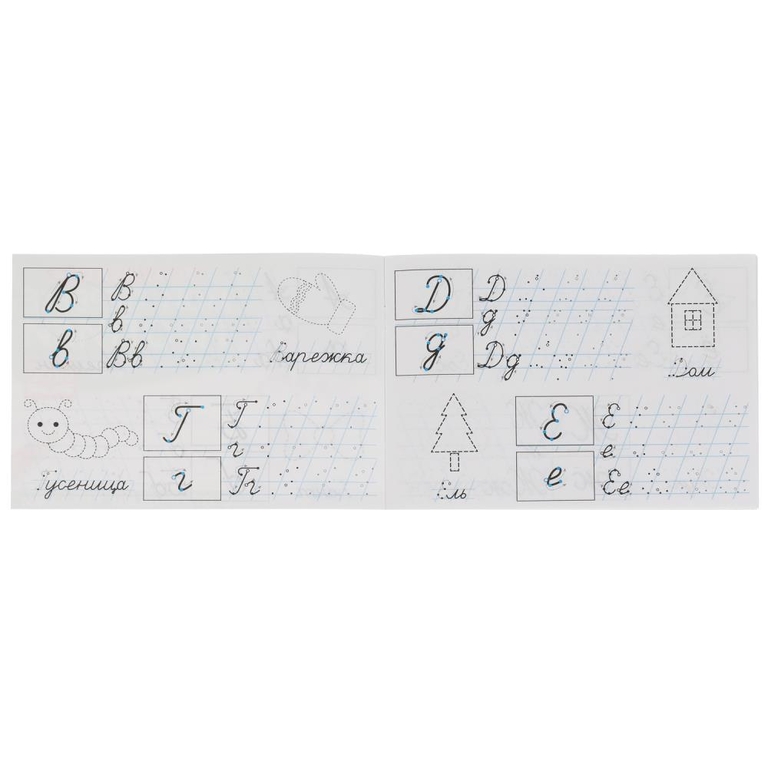 В В
в
в Вв
Варежка
Г Г
г
Гусеница
г Гг
Д Д
д
д Дд
Дом
Е Е
е
Ель
е Ее